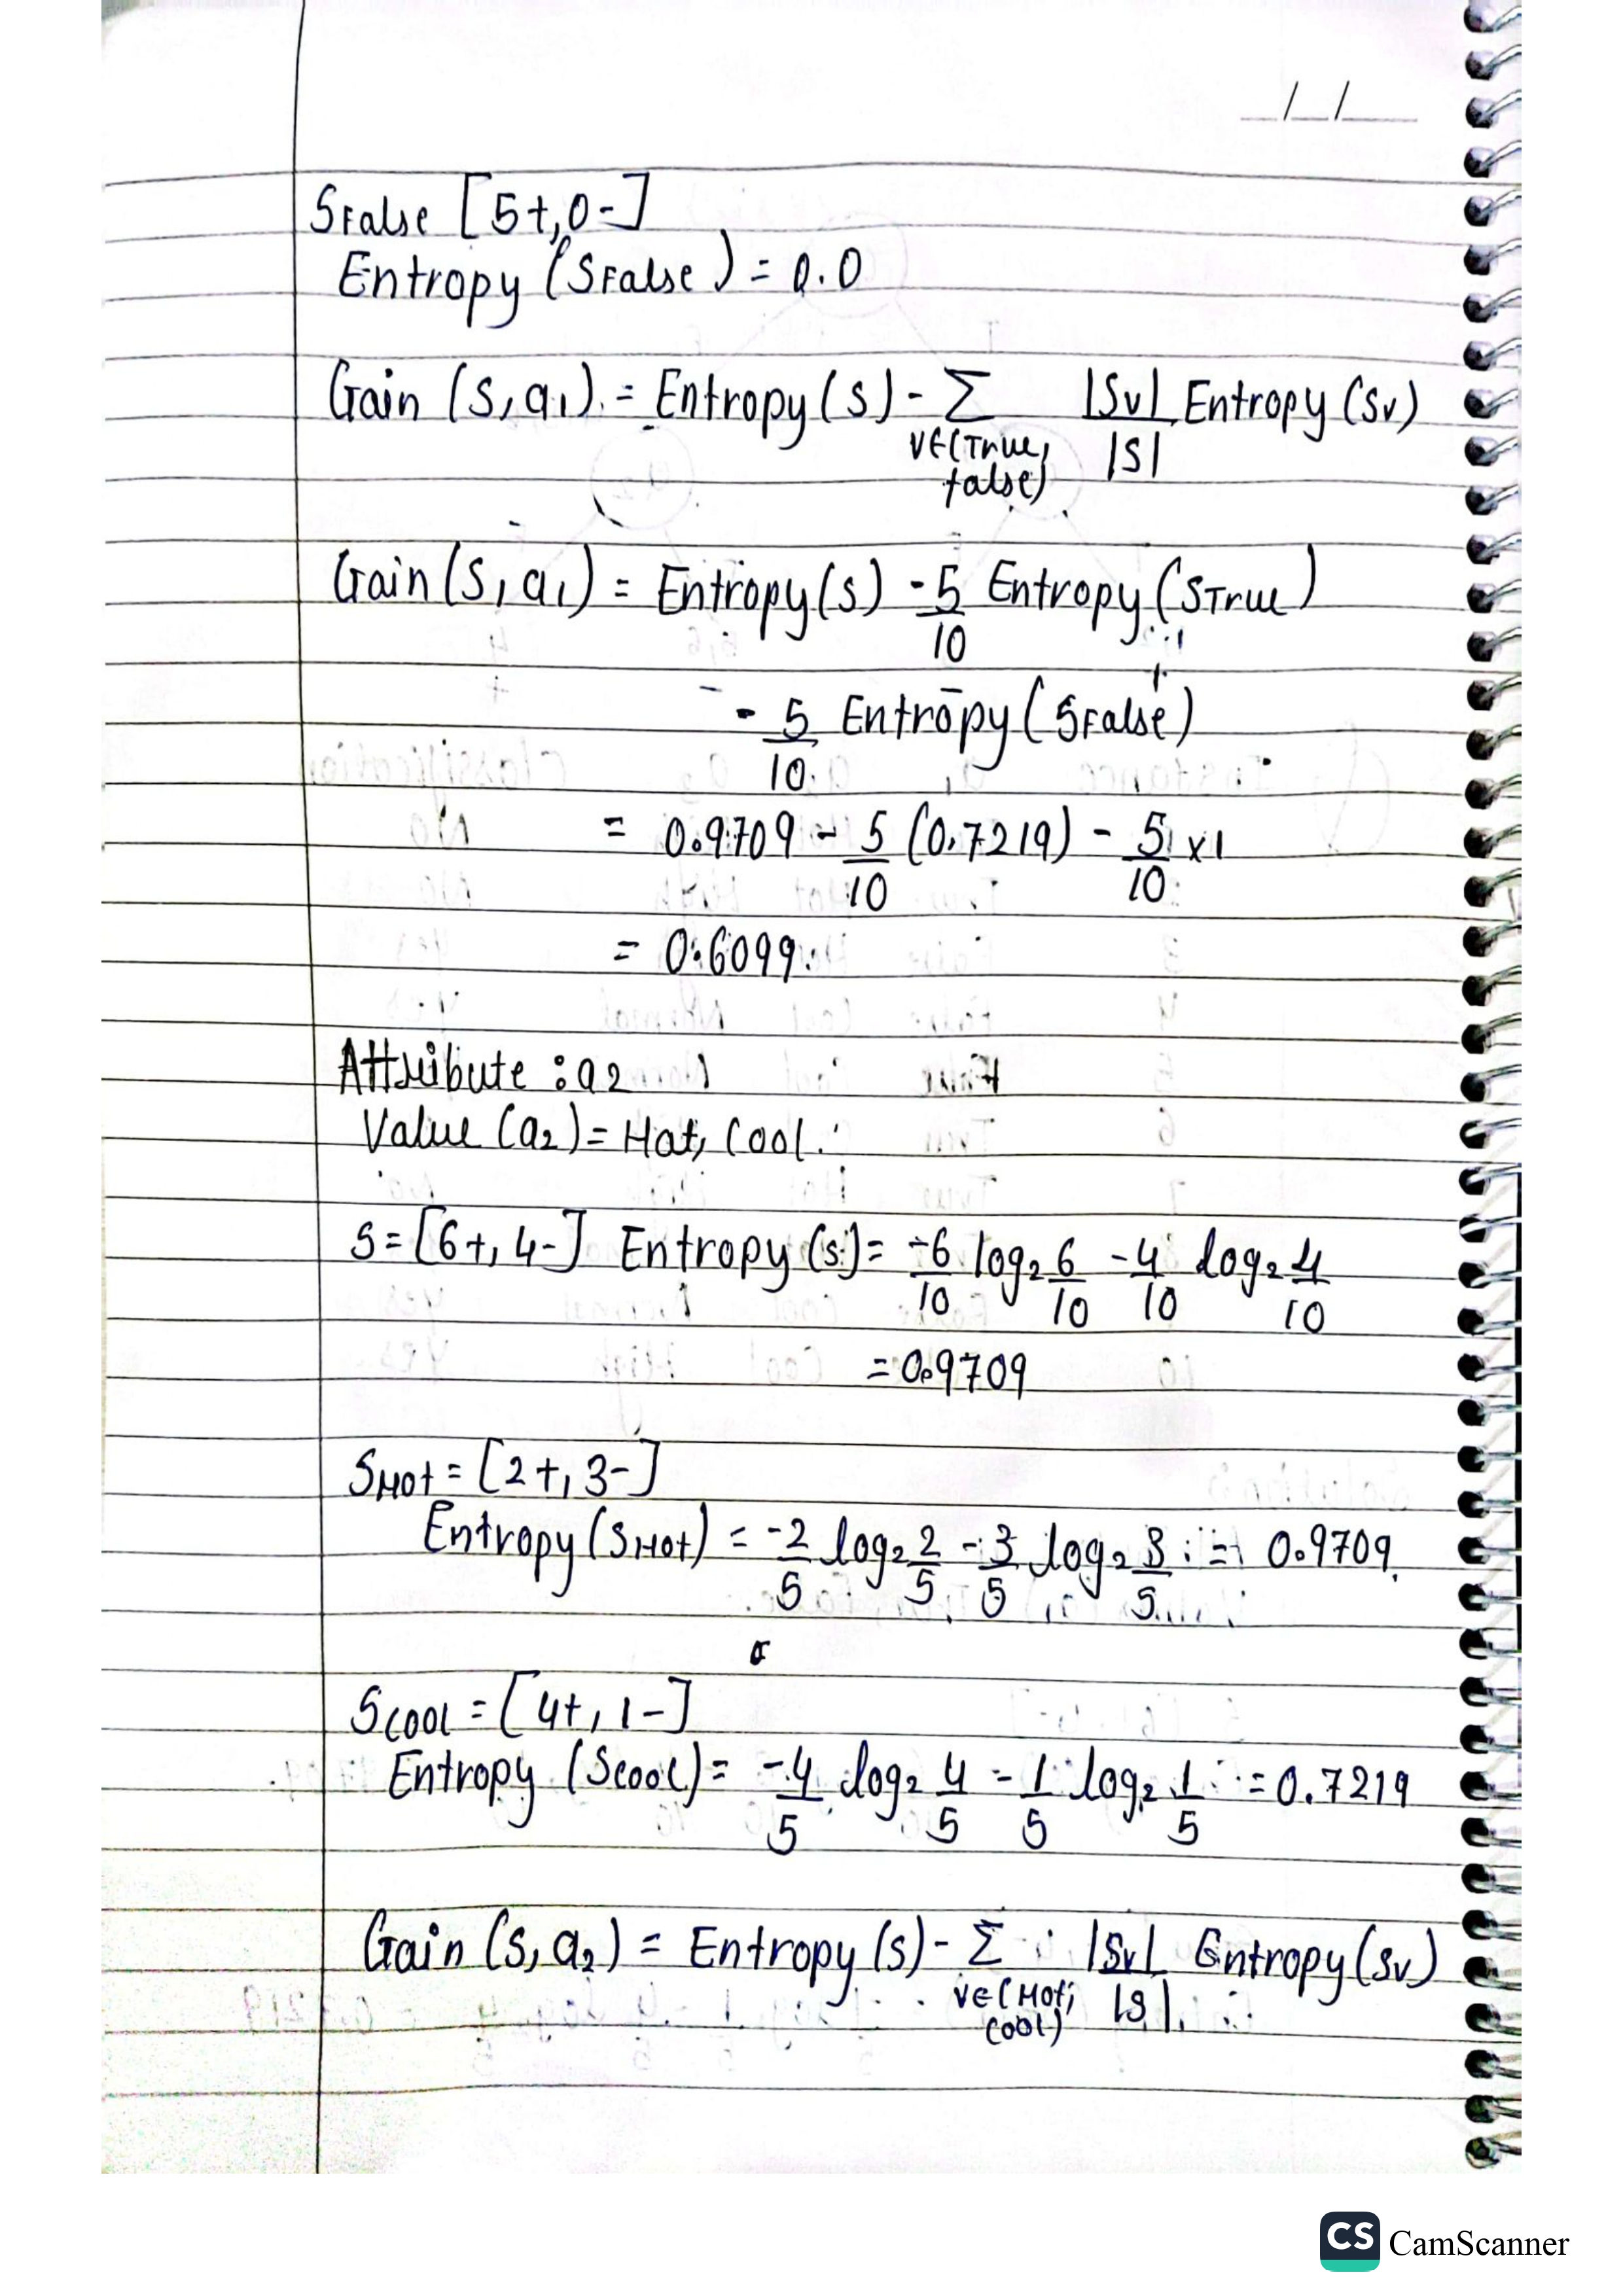 __/__/____
SFalse [5+, 0-]
Entropy (SFalse) = 0.0
Gain (S, a1) = Entropy(S) - Σ |Sv| Entropy(Sv)
v∈(True, |S|
false)
Gain(S, a1) = Entropy(S) - 5/10 Entropy(STrue)
- 5/10 Entropy(SFalse)
= 0.9709 - 5/10 (0.7219) - 5/10 x1
= 0.6099.
Attribute : a2
Value (a2) = Hot, Cool.
S = [6+, 4-] Entropy(S) = -6/10 log2 6/10 - 4/10 log2 4/10
= 0.9709
SHot = [2+, 3-]
Entropy(SHot) = -2/5 log2 2/5 - 3/5 log2 3/5 = 0.9709
SCool = [4+, 1-]
Entropy (SCool) = -4/5 log2 4/5 - 1/5 log2 1/5 = 0.7219
Gain (S, a2) = Entropy (S) - Σ |Sv| Entropy(Sv)
v∈(Hot, |S|
Cool)
CS CamScanner